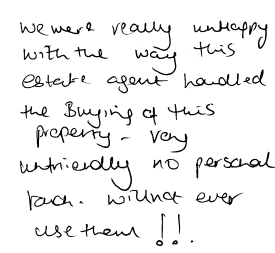 we were really unhappy
with the way this
estate agent handled
the Buying of this
property - very
unfriendly no personal
touch. will not ever
use them !!.